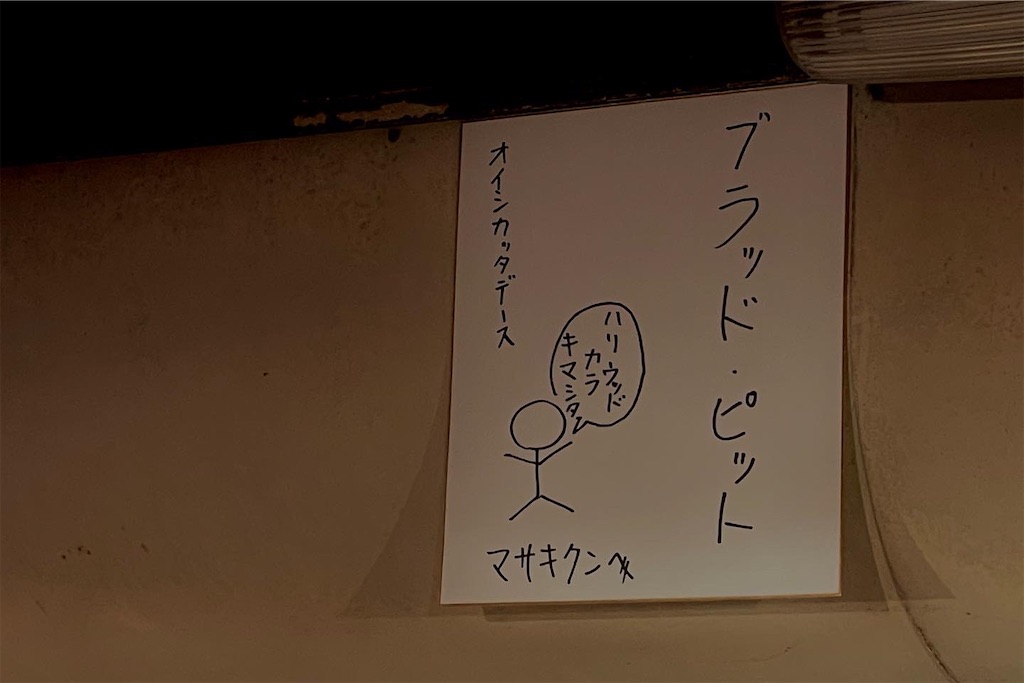 ブラッド・ピット
ハリウッド
カラ
キマシタ
オイシカッタデース
マサキクンへ